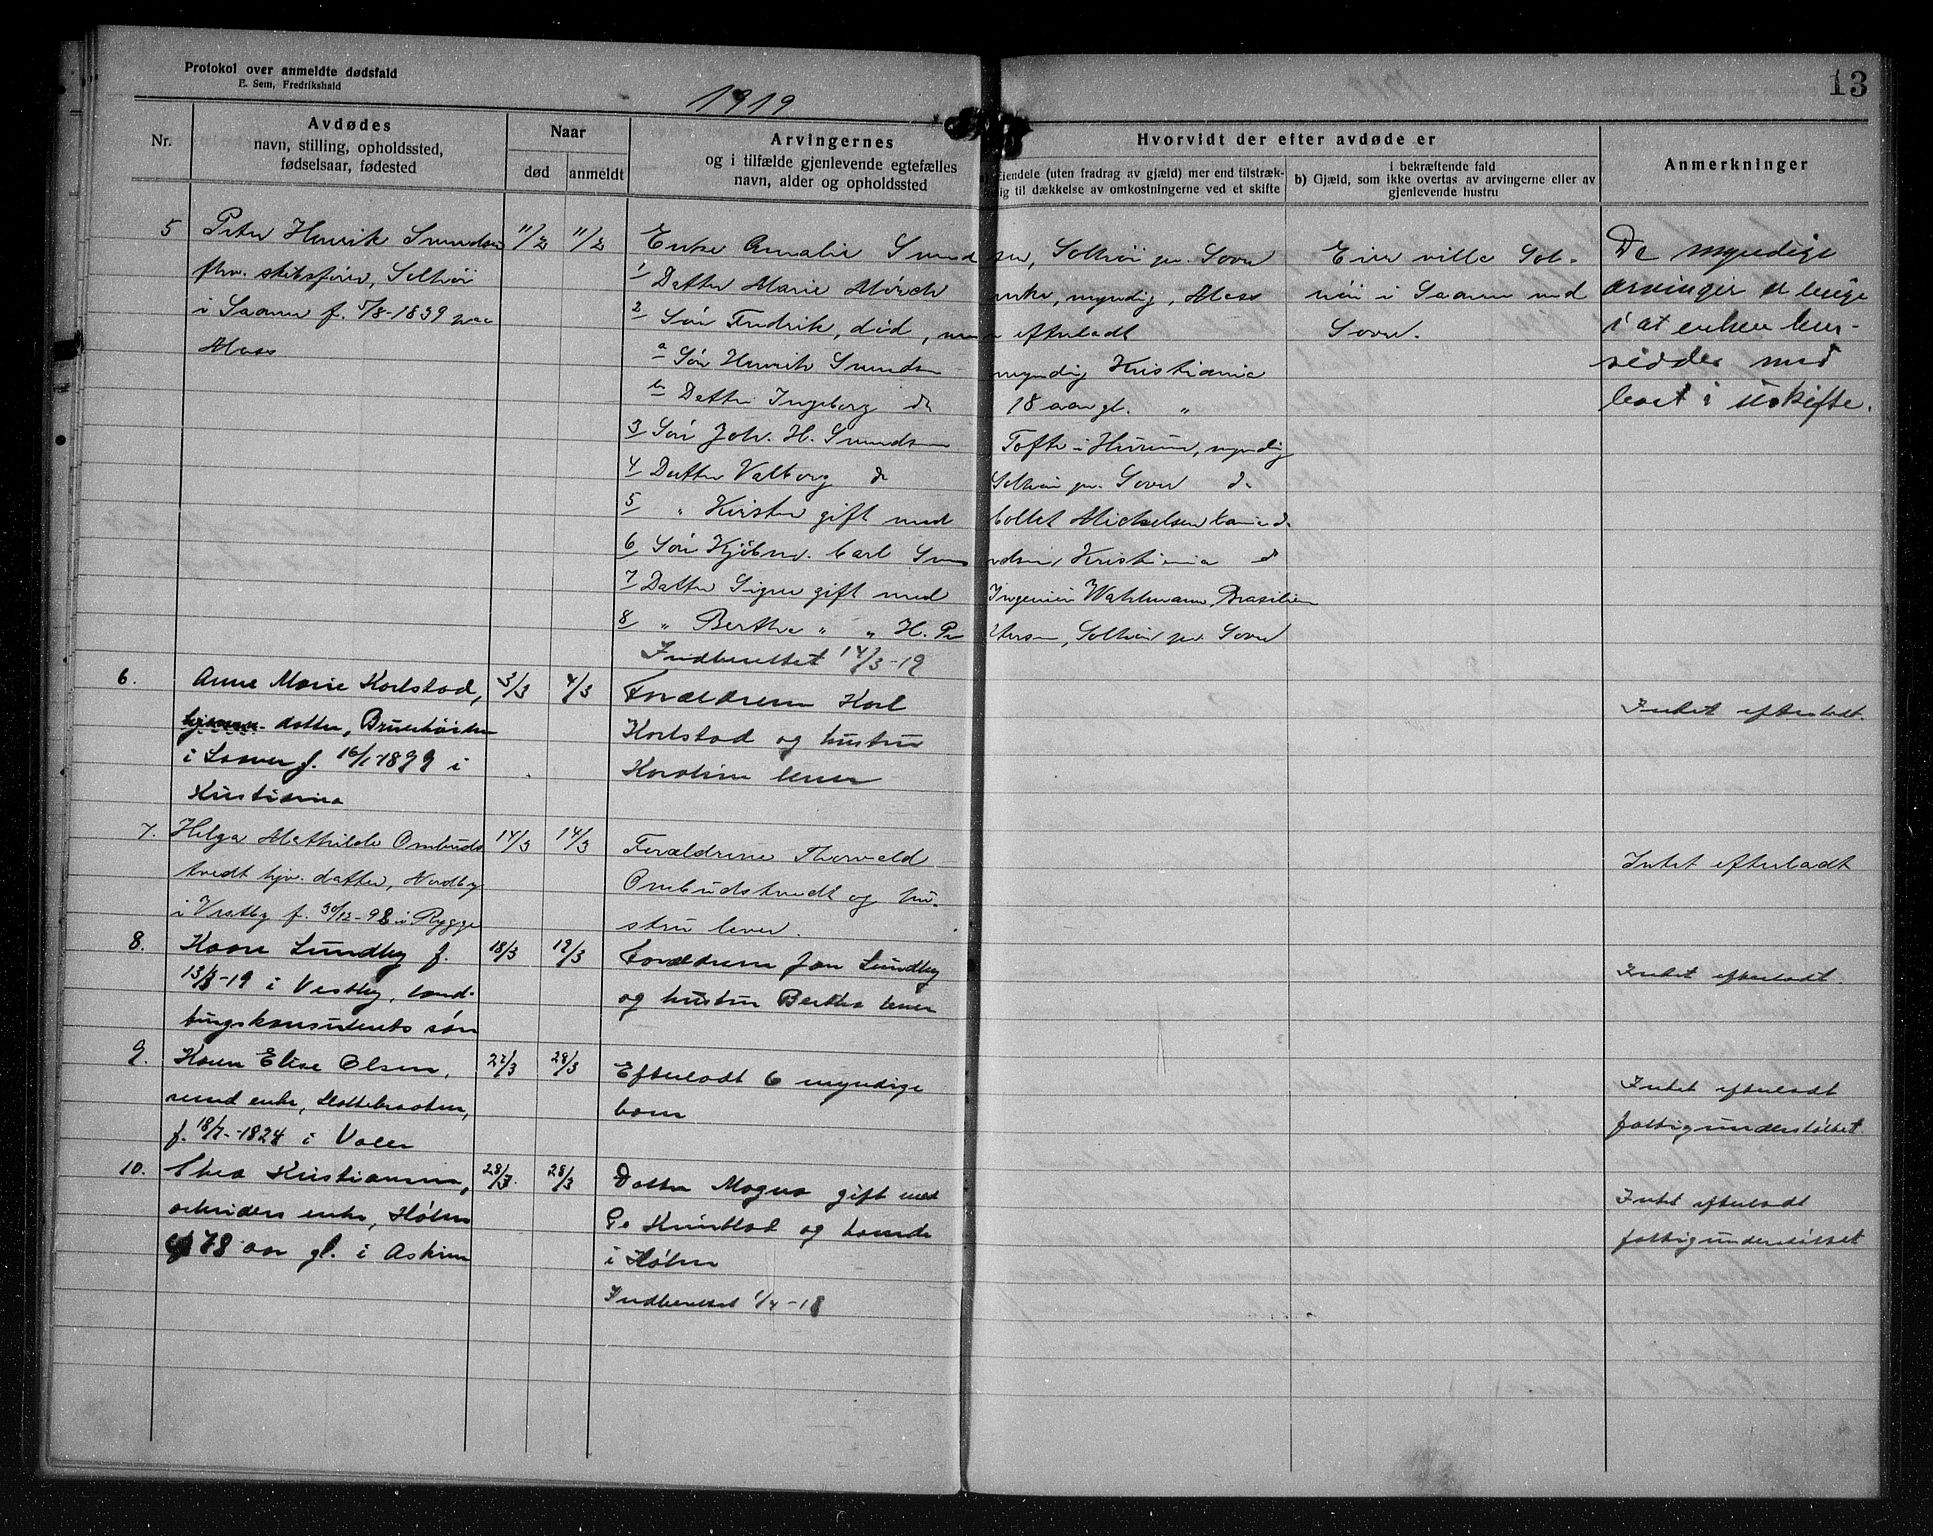 Protokol over anmeldte dødsfald
E. Sem, Fredrikshald
1919
13
Nr.
Avdødes
navn, stilling, opholdssted,
fødselsaar, fødested
Naar
død
anmeldt
Arvingernes
og i tilfælde gjenlevende egtefælles
navn, alder og opholdssted
Hvorvidt der efter avdøde er
Eiendele (uten fradrag av gjæld) mer end tilstræk-
lig til dækkelse av omkostningerne ved et skifte
i bekræftende fald
b) Gjæld, som ikke overtas av arvingerne eller av
gjenlevende hustru
Anmerkninger
5 Peter Henrik Svendsen 11/2 11/2
fhv. skibsfører, Solhøi
i Saaner f. 5/8-1839 paa
Moss
Enke Amalie Svendsen, Solhøi pr. Soon
1 Datter Marie Mörch enke, myndig, Moss
2 Søn Fredrik, død, men efterladt
a Søn Henrik Svendsen myndig Kristiania
b Datter Ingeborg do 18 aar gl. "
3 Søn Joh. H. Svendsen Tofte i Hurum, myndig
4 Datter Valborg do Solhøi pr. Soon do
5 " Kirsten gift med Michelsen do
6 Søn Kjøbmd. Carl Svendsen, Kristiania do
7 Datter Signe gift med Ingeniør Wahlmann, Brasilien
8 " Berthe " " H. Petersen, Solhøi pr. Soon
Indberettet 14/3-19
Eier villa Sol-
høi i Saaner ved
Soon.
De myndige
arvinger er enige
i at enken hen-
sidder med
boet i uskifte.
6. Anne Marie Karlstad, 3/3 4/3
datter, Brevikåsen
i Saaner f. 16/1-1899 i
Kristiania
Forældrene Karl
Karlstad og hustru
Karoline lever
Intet efterladt
7. Helga Mathilde Ombuds 14/3 14/3
tvedt hjv. datter, Nordby
i Vestby f. 30/12-98 i Rygge
Forældrene Thorvald
Ombudstvedt og hu-
stru lever.
Intet efterladt
8. Kaare Sundby f. 18/3 19/3
13/3-19 i Vestby, land-
brugskonsulents søn
Forældrene Jon Sundby
og hustru Bertha lever
Intet efterladt.
9. Karen Elise Olsen, 27/3 28/3
enke,
f. 18/7-1824 i Vaaler
Efterladt 6 myndige
barn
Intet efterladt
fattigunderstøttet.
10. Thea Kristiansen, 28/3 28/3
arbeiders enke, Hølen
78 aar gl. i Askim
Datter Magna gift med
og boende
i Hølen
Indberettet 1/4-18
Intet efterladt
fattigunderstøttet